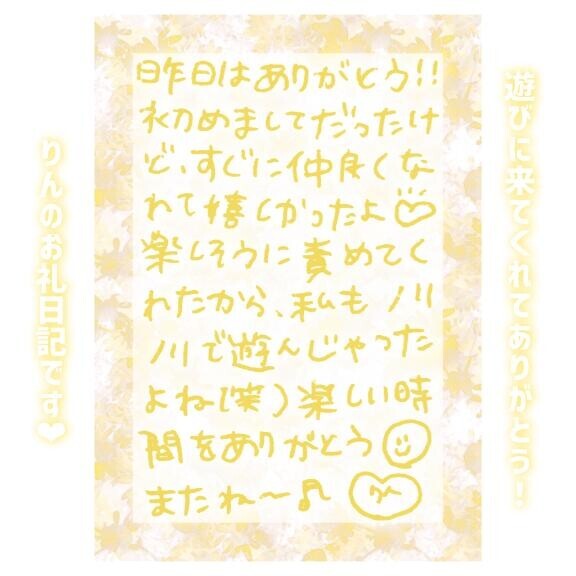 遊びに来てくれてありがとう！
昨日はありがとう!!
初めましてだったけ
ど、すぐに仲良くな
れて嬉しかったよ♡
楽しそうに責めてく
れたから、私もノリ
ノリで遊んじゃった
よね(笑)楽しい時
間をありがとう☺
またね〜♪ りん
りんのお礼日記です❤